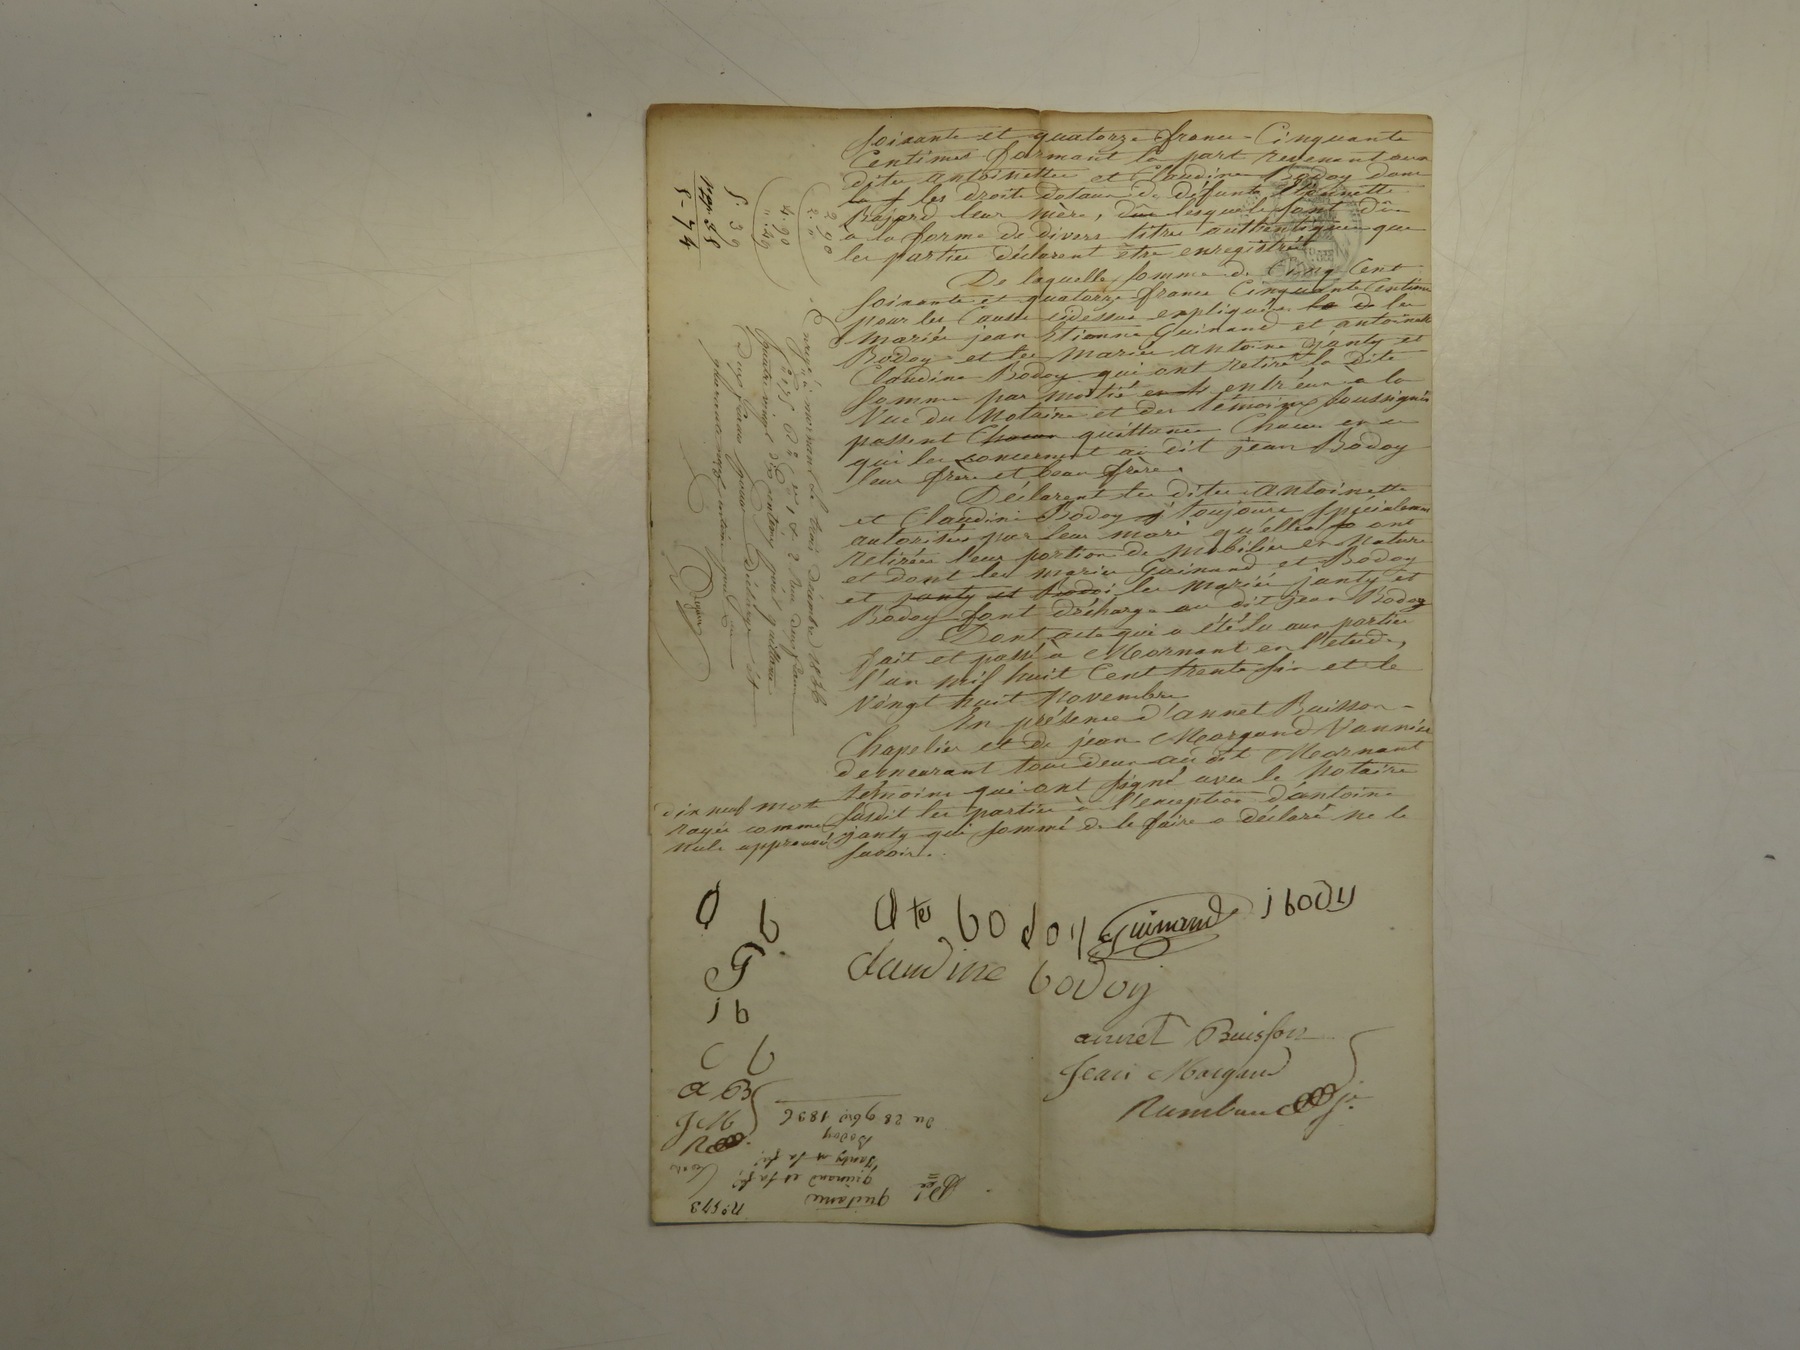 soixante et quatorze francs Cinquante
Centimes formant la part revenant aux
dites antoinette et Claudine Bodoy dans
les droits dotaux de défunte
leur mère, lesquels sont dûs
à la forme de divers titres authentiques que
les parties déclarent être enregistrés
De laquelle somme de Cinq Cent
soixante et quatorze francs Cinquante Centimes
pour les Causes cidessus expliquées les
mariés jean Etienne Guinand et antoinette
Bodoy et les mariés antoine janty et
Claudine Bodoy qui ont retiré la dite
somme par moitié entreux a la
Vue du Notaire et des témoins soussignés
passent quittance Chacun en ce
qui les concernent au dit jean Bodoy
leur frère et beau frère.
Déclarent les dites antoinette
et Claudine Bodoy toujours spécialement
autorisées par leur mari qu'elles ont
retirées leur portion de mobilier en Nature
et dont les mariés Guinand et Bodoy
et janty et Bodoi les mariés janty et
Bodoy font décharge au dit jean Bodoy
Dont acte qui a été lu aux parties
fait et passé à Mornant en l'etude,
l'an mil huit Cent trente six et le
Vingt huit Novembre
En présence d'annet Buisson
Chapelier et de jean Margand Vannier
demeurant tous deux au dit Mornant
témoins qui ont signé avec le Notaire
susdit les parties à l'exception d'antoine
janty qui sommé de le faire a déclaré ne le
savoir.
dix neuf mots
rayés comme
nuls approuvés
2 90
2. "
4. 90
". 49
5. 39
35
5 - 74
Enregé à mornant le trois décembre 1836
quatre vingt dix centimes pour quittance
Deux francs pour Décharge et
quarante neuf centimes pour
A b
G
j b
C b
a B
J M
R
Ate bodoy Guinand j bodoy
claudine bodoy
annet Buisson
Jean Margand
N° 573
quittance
guinand et sa fe
Janty et sa fe
Bodoy
du 28 9bre 1836